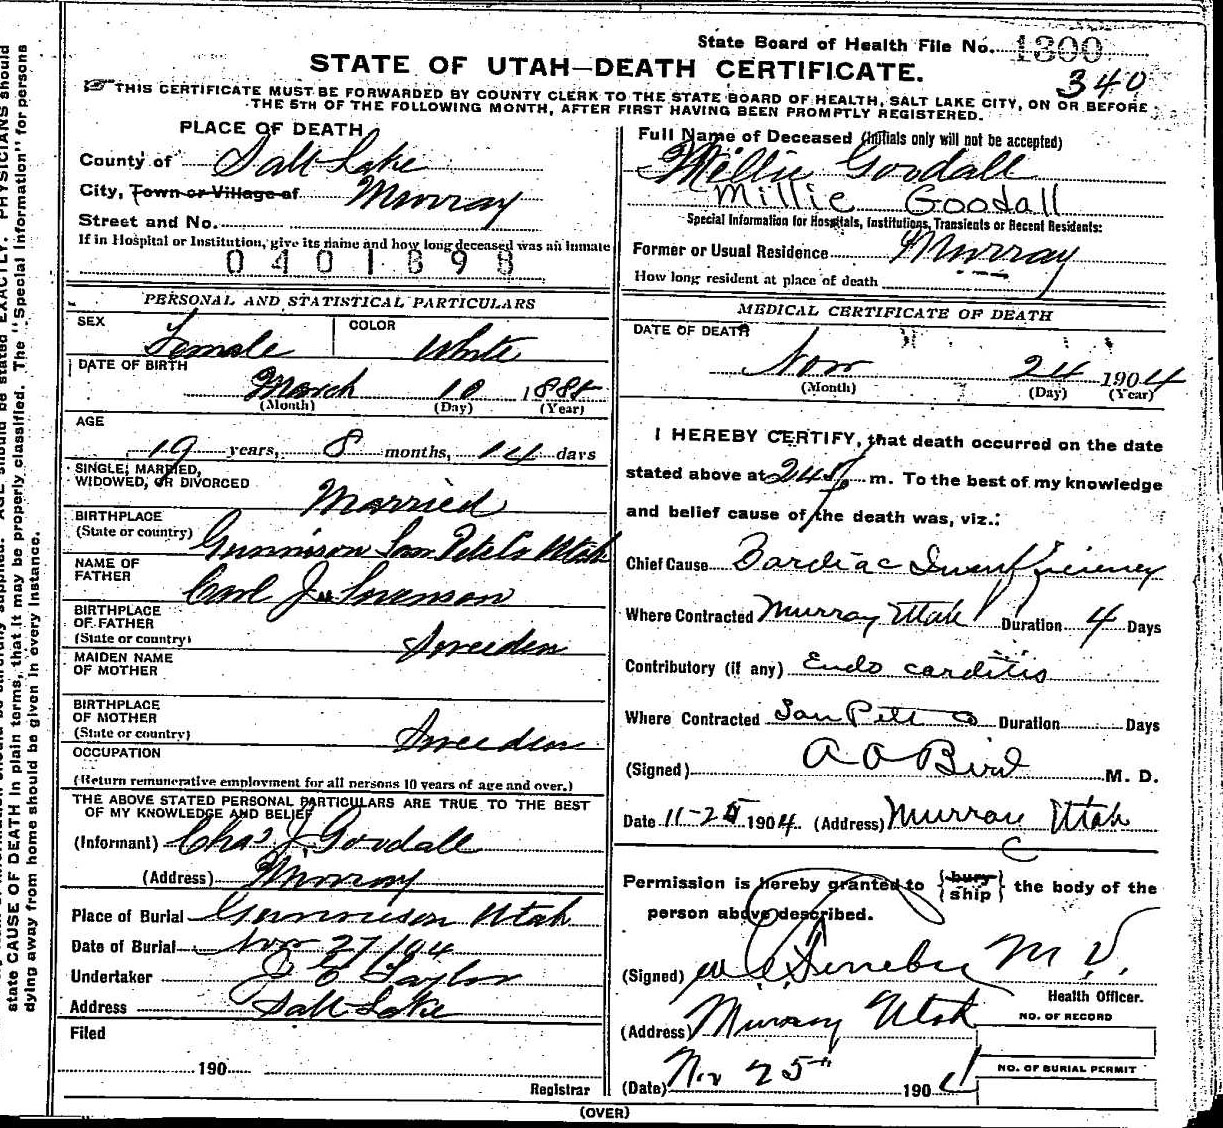 State Board of Health File No. 1300
STATE OF UTAH—DEATH CERTIFICATE.
340
THIS CERTIFICATE MUST BE FORWARDED BY COUNTY CLERK TO THE STATE BOARD OF HEALTH, SALT LAKE CITY, ON OR BEFORE
THE 5TH OF THE FOLLOWING MONTH, AFTER FIRST HAVING BEEN PROMPTLY REGISTERED.
PLACE OF DEATH
County of Salt Lake
City, Town or Village of Murray
Street and No.
If in Hospital or Institution, give its name and how long deceased was an inmate
0401898
PERSONAL AND STATISTICAL PARTICULARS
SEX Female COLOR White
DATE OF BIRTH
March 10 1885
(Month) (Day) (Year)
AGE
19 years, 8 months, 14 days
SINGLE, MARRIED,
WIDOWED, OR DIVORCED Married
BIRTHPLACE
(State or country) Gunnison San Pete Co Utah
NAME OF
FATHER Carl J. Sorenson
BIRTHPLACE
OF FATHER
(State or country) Sweeden
MAIDEN NAME
OF MOTHER
BIRTHPLACE
OF MOTHER
(State or country) Sweeden
OCCUPATION
(Return remunerative employment for all persons 10 years of age and over.)
THE ABOVE STATED PERSONAL PARTICULARS ARE TRUE TO THE BEST
OF MY KNOWLEDGE AND BELIEF
(Informant) Chas J Goodall
(Address) Murray
Place of Burial Gunnison Utah
Date of Burial Nov 27/04
Undertaker J E Taylor
Address Salt Lake
Filed
190
Registrar
Full Name of Deceased (Initials only will not be accepted)
Millie Goodall
Millie Goodall
Special Information for Hospitals, Institutions, Transients or Recent Residents:
Former or Usual Residence Murray
How long resident at place of death
MEDICAL CERTIFICATE OF DEATH
DATE OF DEATH
Nov 24 1904
(Month) (Day) (Year)
I HEREBY CERTIFY, that death occurred on the date
stated above at m. To the best of my knowledge
and belief cause of the death was, viz.:
Chief Cause Cardiac Insufficiency
Where Contracted Murray Utah Duration 4 Days
Contributory (if any) Endo carditis
Where Contracted San Pete Co Duration Days
(Signed) A O Bird M. D.
Date 11-25 1904. (Address) Murray Utah
Permission is hereby granted to {bury ship} the body of the
person above described.
(Signed) M D.
Health Officer.
(Address) Murray Utah
NO. OF RECORD
(Date) Nov 25th 1904
NO. OF BURIAL PERMIT
(OVER)
state CAUSE OF DEATH in plain terms, that it may be properly classified. The "Special Information" for persons
dying away from home should be given in every instance.